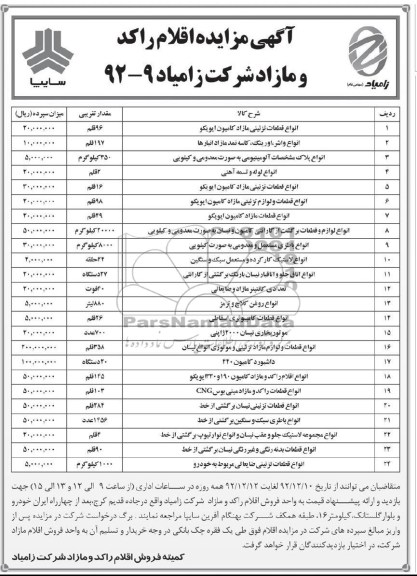 آگهی مزایده اقلام راکد
و مازاد شرکت زامیاد ۹-۹۲
زامیاد
سایپا
ردیف شرح کالا مقدار تقریبی میزان سپرده (ریال)
۱ انواع قطعات تزئینی مازاد کامیون ایویکو ۹۶قلم ۲۰,۰۰۰,۰۰۰
۲ انواع واشر، اورینگ، کاسه نمد مازاد انبارها ۱۹۷قلم ۱۰,۰۰۰,۰۰۰
۳ انواع پلاک مشخصات آلومینیومی به صورت معدومی و کیلویی ۳۵۰کیلوگرم ۵,۰۰۰,۰۰۰
۴ انواع لوله و تسمه آهنی ۲۰,۰۰۰,۰۰۰
۵ انواع قطعات تزئینی مازاد کامیون ایویکو ۱۶قلم ۳۰,۰۰۰,۰۰۰
۶ انواع قطعات و لوازم تزئینی مازاد کامیون ایویکو ۹۸قلم ۲۰,۰۰۰,۰۰۰
۷ انواع قطعات مازاد کامیون ایویکو ۲۹قلم ۲۰,۰۰۰,۰۰۰
۸ انواع لوازم و قطعات برگشت از گارانتی کامیون و نیسان به صورت معدومی و کیلویی ۲۰۰۰۰کیلوگرم ۵۰,۰۰۰,۰۰۰
۹ انواع باطری مستعمل و معدومی به صورت کیلویی ۸۰۰۰کیلوگرم ۳۰,۰۰۰,۰۰۰
۱۰ انواع لاستیک کارکرده و مستعمل سبک و سنگین ۲۴حلقه ۲,۰۰۰,۰۰۰
۱۱ انواع اتاق جلو و اتاق بار نیسان بارنگ برگشتی از گارانتی ۲۷دستگاه ۲۰,۰۰۰,۰۰۰
۱۲ تعدادی کانتینر مازاد و ضایعاتی ۴۰فوت ۲۰,۰۰۰,۰۰۰
۱۳ انواع روغن کلاچ و ترمز ۸۸۰لیتر ۵,۰۰۰,۰۰۰
۱۴ انواع قطعات کامپیوتری اسقاطی ۲۶قلم ۵,۰۰۰,۰۰۰
۱۵ موتور بخاری نیسان ۲۴۰۰۰ژاپنی ۷۰۰عدد ۲۰,۰۰۰,۰۰۰
۱۶ انواع قطعات و لوازم مازاد تزئینی و موتوری انواع نیسان ۳۵۸قلم ۲۰۰,۰۰۰,۰۰۰
۱۷ داشبورد کامیون ۲۴۰ ۲۰دستگاه ۱۰۰,۰۰۰,۰۰۰
۱۸ انواع اقلام راکد و مازاد کامیون ۱۹۰و۳۳۰ایویکو ۱۲۵قلم ۵۰,۰۰۰,۰۰۰
۱۹ انواع قطعات راکد و مازاد مینی بوس CNG ۱۰۳قلم ۵۰,۰۰۰,۰۰۰
۲۰ انواع قطعات تزئینی نیسان برگشتی از خط ۲۸۴قلم ۵۰,۰۰۰,۰۰۰
۲۱ انواع باطری سبک و سنگین برگشتی از خط ۱۲۵۶عدد ۵۰,۰۰۰,۰۰۰
۲۲ انواع مجموعه لاستیک جلو و عقب نیسان و انواع نوار تیوپ برگشتی از خط ۶قلم ۲۰,۰۰۰,۰۰۰
۲۳ انواع قطعات بدنه رنگی و غیر رنگی نیسان برگشتی از خط ۹۰قلم ۵۰,۰۰۰,۰۰۰
۲۴ انواع قطعات تزئینی ضایعاتی مربوط به خودرو ۱۰۰۰کیلوگرم ۵,۰۰۰,۰۰۰
ParsNamadData
متقاضیان می توانند از تاریخ ۹۲/۱۲/۱۰ لغایت ۹۲/۱۲/۱۲ همه روزه در ساعات اداری (از ساعت ۹ الی ۱۲ و ۱۳ الی ۱۵) جهت
بازدید و ارائه پیشنهاد قیمت به واحد فروش اقلام راکد و مازاد شرکت زامیاد واقع در جاده قدیم کرج، بعد از چهارراه ایران خودرو
و بلوار گلستانک، کیلومتر ۱۶، طبقه همکف شرکت بهنگام آفرین سایپا مراجعه نمایند. برگ درخواست شرکت در مزایده پس از
واریز مبالغ سپرده های شرکت در مزایده اقلام فوق طی یک فقره چک بانکی در وجه خریدار و تسلیم آن به واحد فروش اقلام مازاد
شرکت، در اختیار بازدیدکنندگان قرار خواهد گرفت.
کمیته فروش اقلام راکد و مازاد شرکت زامیاد